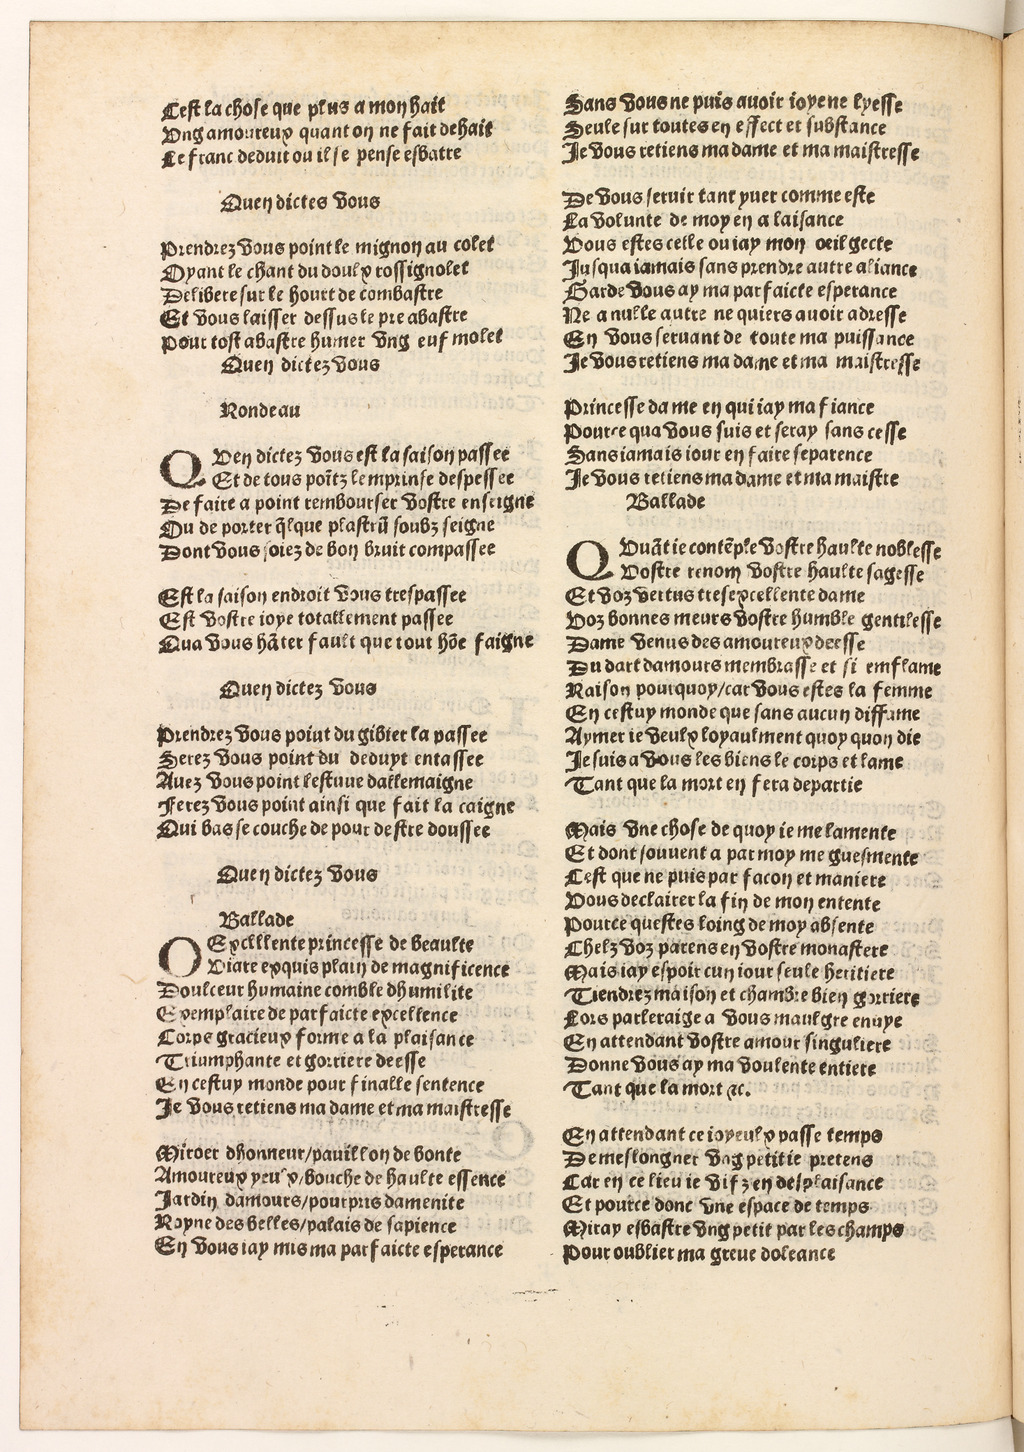 Cest la chose que plus a mon hait
Ung amoureux quant on ne fait dehait
Le franc deduit ou il se pense esbatre
Quen dictes vous
Prendrez vous point le mignon au colet
Oyant le chant du doulx rossignolet
Delibere sur le hourt de combastre
Et vous laisser dessus le pre abastre
Pour tost abastre humer ung euf molet
Quen dictez vous
Rondeau
QVen dictez vous est la saison passee
Et de tous poītz lemprinse despessee
De faire a point rembourser vostre enseigne
Ou de porter q̄lque plastrū soubz seigne
Dont vous soiez de bon bruit compassee
Est la saison endroit vous trespassee
Est vostre ioye totallement passee
Qua vous hāter fault que tout hōe faigne
Quen dictez vous
Prendrez vous point du gibier la passee
Serez vous point du deduyt entassee
Auez vous point lestuue dallemaigne
Ferez vous point ainsi que fait la caigne
Qui bas se couche de pour destre doussee
Quen dictez vous
Ballade
OExcellente princesse de beaulte
Viare exquis plain de magnificence
Doulceur humaine comble dhumilite
Exemplaire de parfaicte excellence
Corps gracieux forme a la plaisance
Triumphante et gorriere deesse
En cestuy monde pour finalle sentence
Je vous retiens ma dame et ma maistresse
Miroer dhonneur/pauillon de bonte
Amoureux yeulx/bouche de haulte essence
Jardin damours/pourpris damenite
Royne des belles/palais de sapience
En vous iay mis ma parfaicte esperance
Sans vous ne puis auoir ioye ne lyesse
Seule sur toutes en effect et substance
Je vous retiens ma dame et ma maistresse
De vous seruir tant yuer comme este
La volunte de moy en a laisance
Vous estes celle ou iay mon oeil gecte
Jusqua iamais sans prendre autre aliance
Garde vous ay ma parfaicte esperance
Ne a nulle autre ne quiers auoir adresse
En vous seruant de toute ma puissance
Je vous retiens ma dame et ma maistresse
Princesse dame en qui iay ma fiance
Pource qua vous suis et seray sans cesse
Sans iamais iour en faire separence
Je vous retiens ma dame et ma maistre
Ballade
QVuāt ie contēple vostre haulte noblesse
Vostre renom vostre haulte sagesse
Et voz vertus tresexcellente dame
Voz bonnes meurs vostre humble gentilesse
Dame Venus des amoureux deesse
Du dart damours membrasse et si emflame
Raison pourquoy/car vous estes la femme
En cestuy monde que sans aucun diffame
Aymer ie veulx loyaulment quoy quon die
Je suis a vous les biens le corps et lame
Tant que la mort en fera departie
Mais une chose de quoy ie me lamente
Et dont souuent a par moy me guesmente
Cest que ne puis par facon et maniere
Vous declairer la fin de mon entente
Pource questes loing de moy absente
Chelz voz parens en vostre monastere
Mais iay espoir cun iour seule heritiere
Tiendrez maison et chambre bien gorriere
Lors parleraige a vous maulgre enuye
En attendant vostre amour singuliere
Donne vous ay ma voulente entiere
Tant que la mort ⁊c.
En attendant ce ioyeulx passe temps
De meslongner ung petit ie pretens
Car en ce lieu ie vifz en desplaisance
Et pource donc une espace de temps
Miray esbastre ung petit par les champs
Pour oublier ma greue doleance